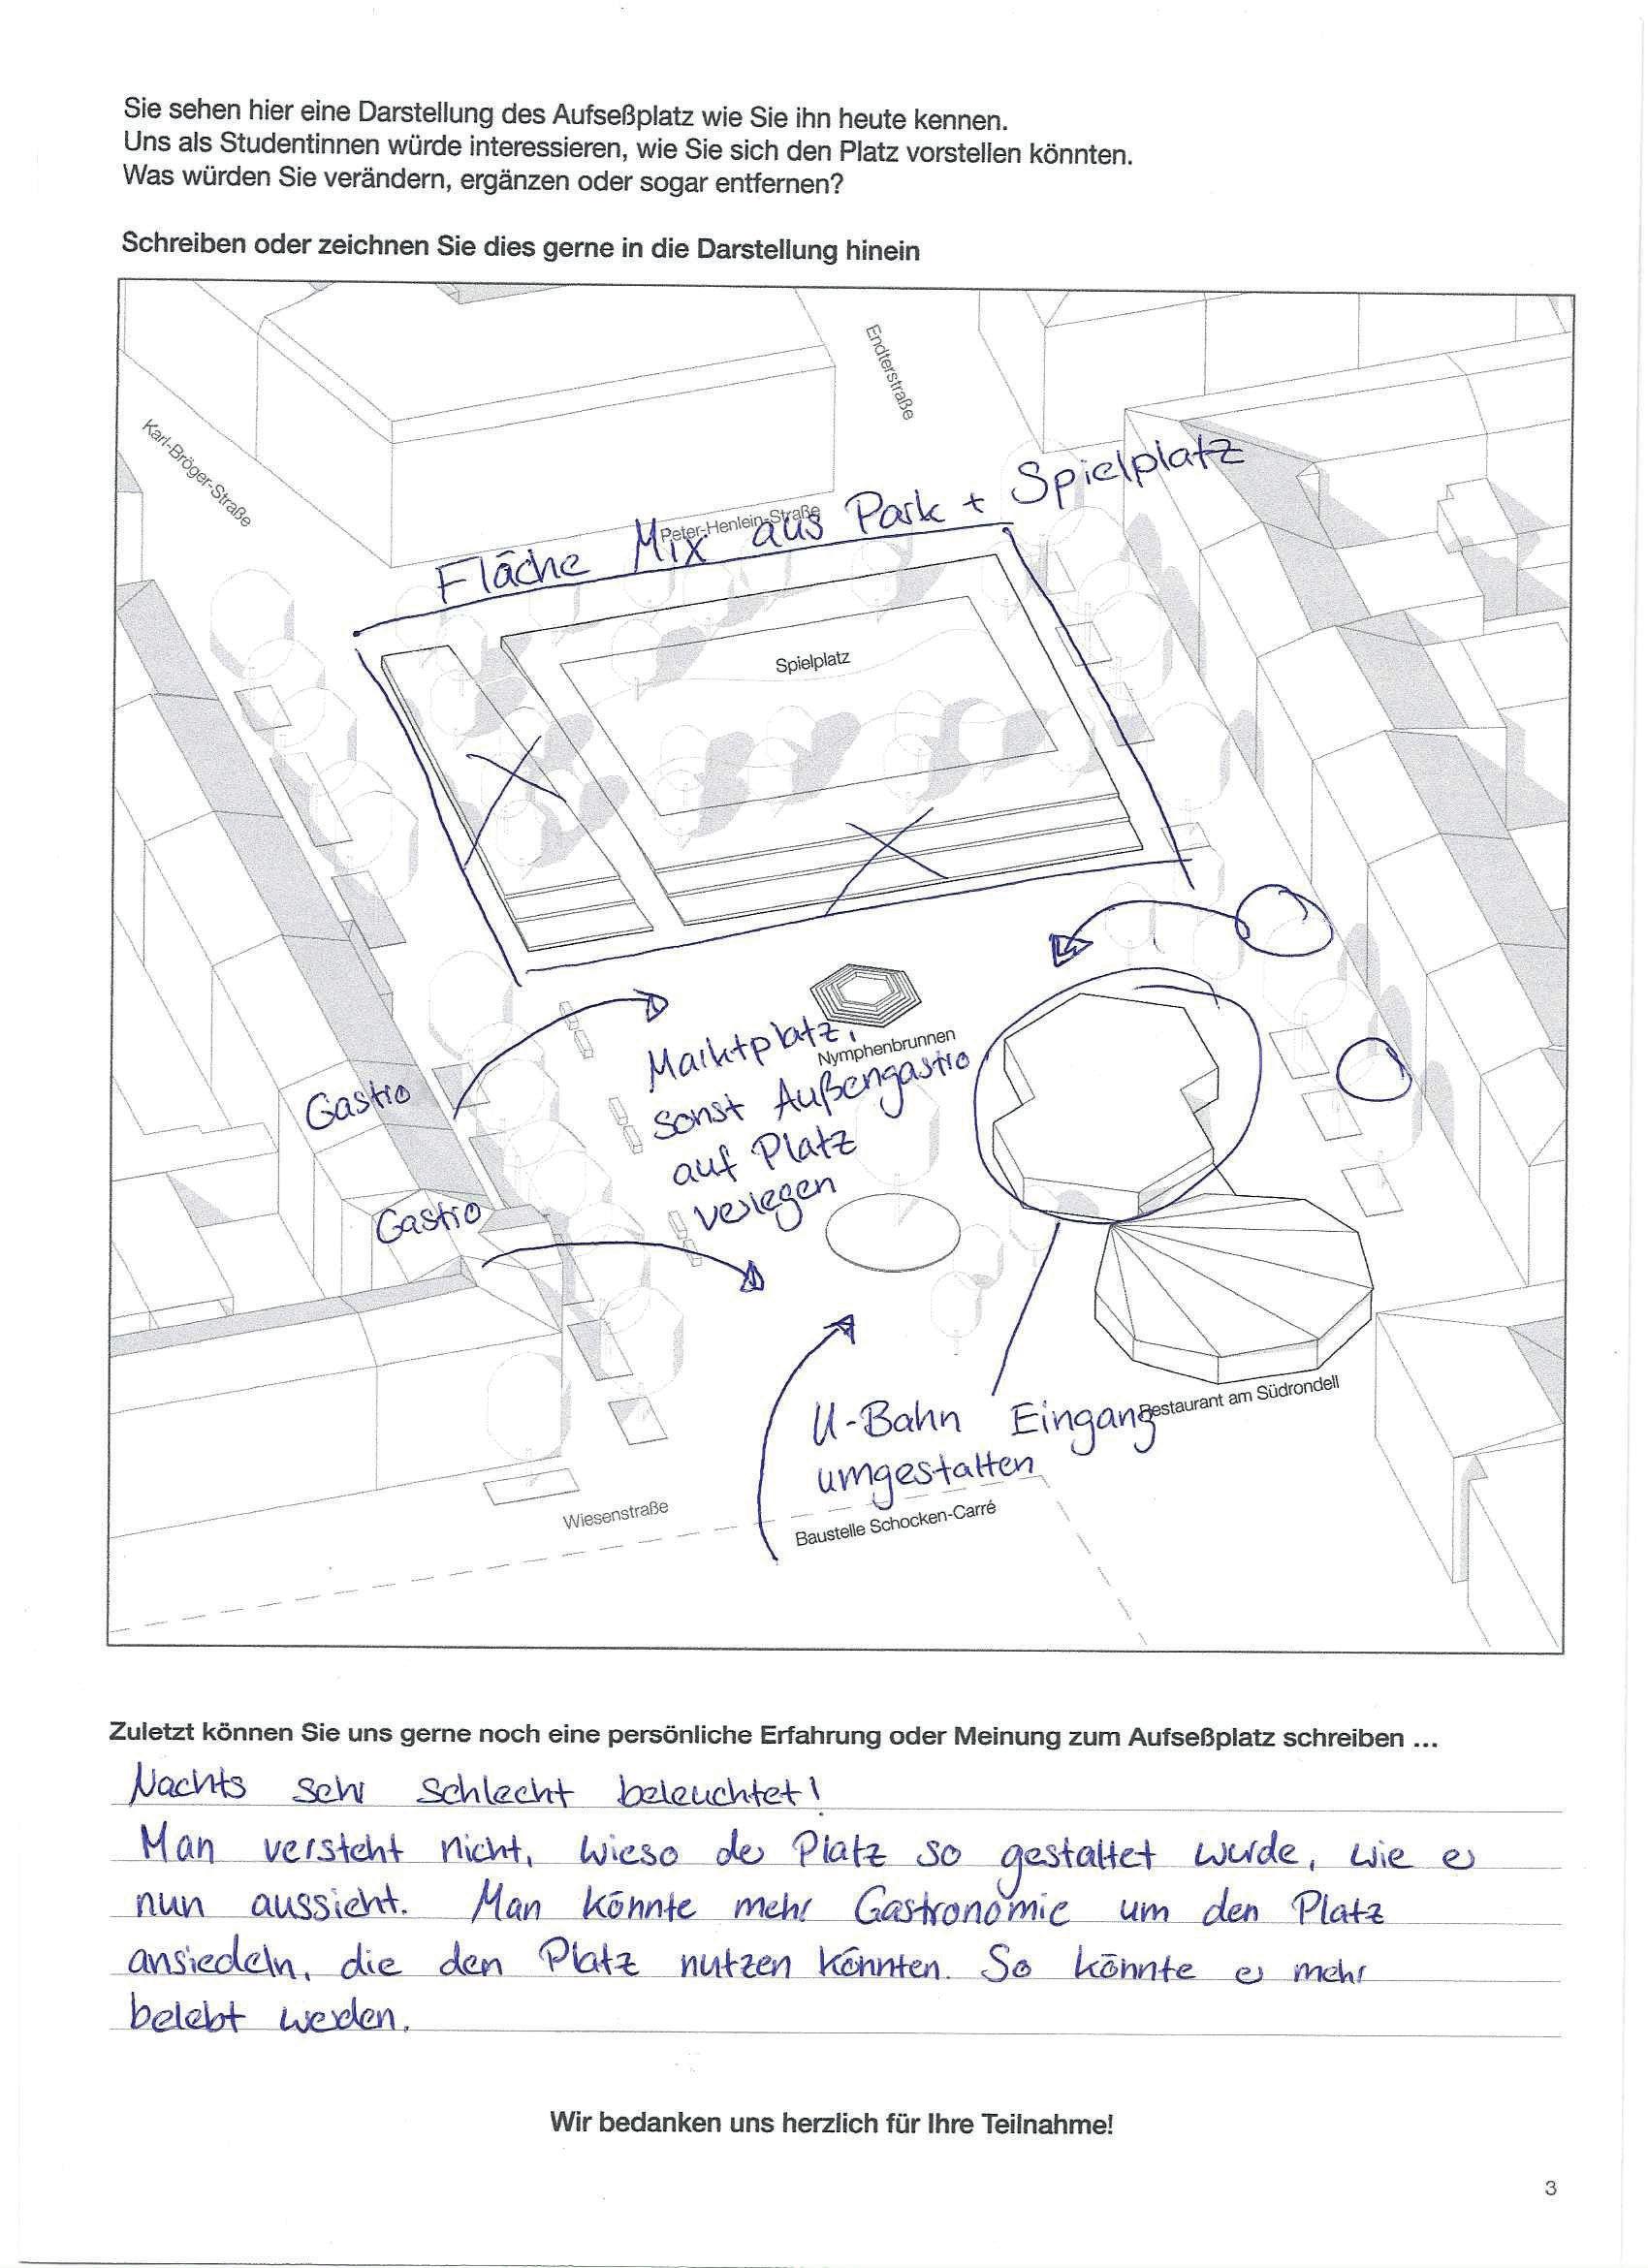 Sie sehen hier eine Darstellung des Aufseßplatz wie Sie ihn heute kennen.
Uns als Studentinnen würde interessieren, wie Sie sich den Platz vorstellen könnten.
Was würden Sie verändern, ergänzen oder sogar entfernen?
Schreiben oder zeichnen Sie dies gerne in die Darstellung hinein
Endterstraße
Karl-Bröger-Straße
Peter-Henlein-Straße
Fläche Mix aus Park + Spielplatz
Spielplatz
Nymphenbrunnen
Marktplatz,
sonst Außengastro
auf Platz
verlegen
Gastro
Gastro
U-Bahn Eingang
umgestalten
Restaurant am Südrondell
Wiesenstraße
Baustelle Schocken-Carré
Zuletzt können Sie uns gerne noch eine persönliche Erfahrung oder Meinung zum Aufseßplatz schreiben ...
Nachts sehr schlecht beleuchtet!
Man versteht nicht, wieso der Platz so gestaltet wurde, wie er
nun aussieht. Man könnte mehr Gastronomie um den Platz
ansiedeln, die den Platz nutzen könnten. So könnte er mehr
belebt werden.
Wir bedanken uns herzlich für Ihre Teilnahme!
3